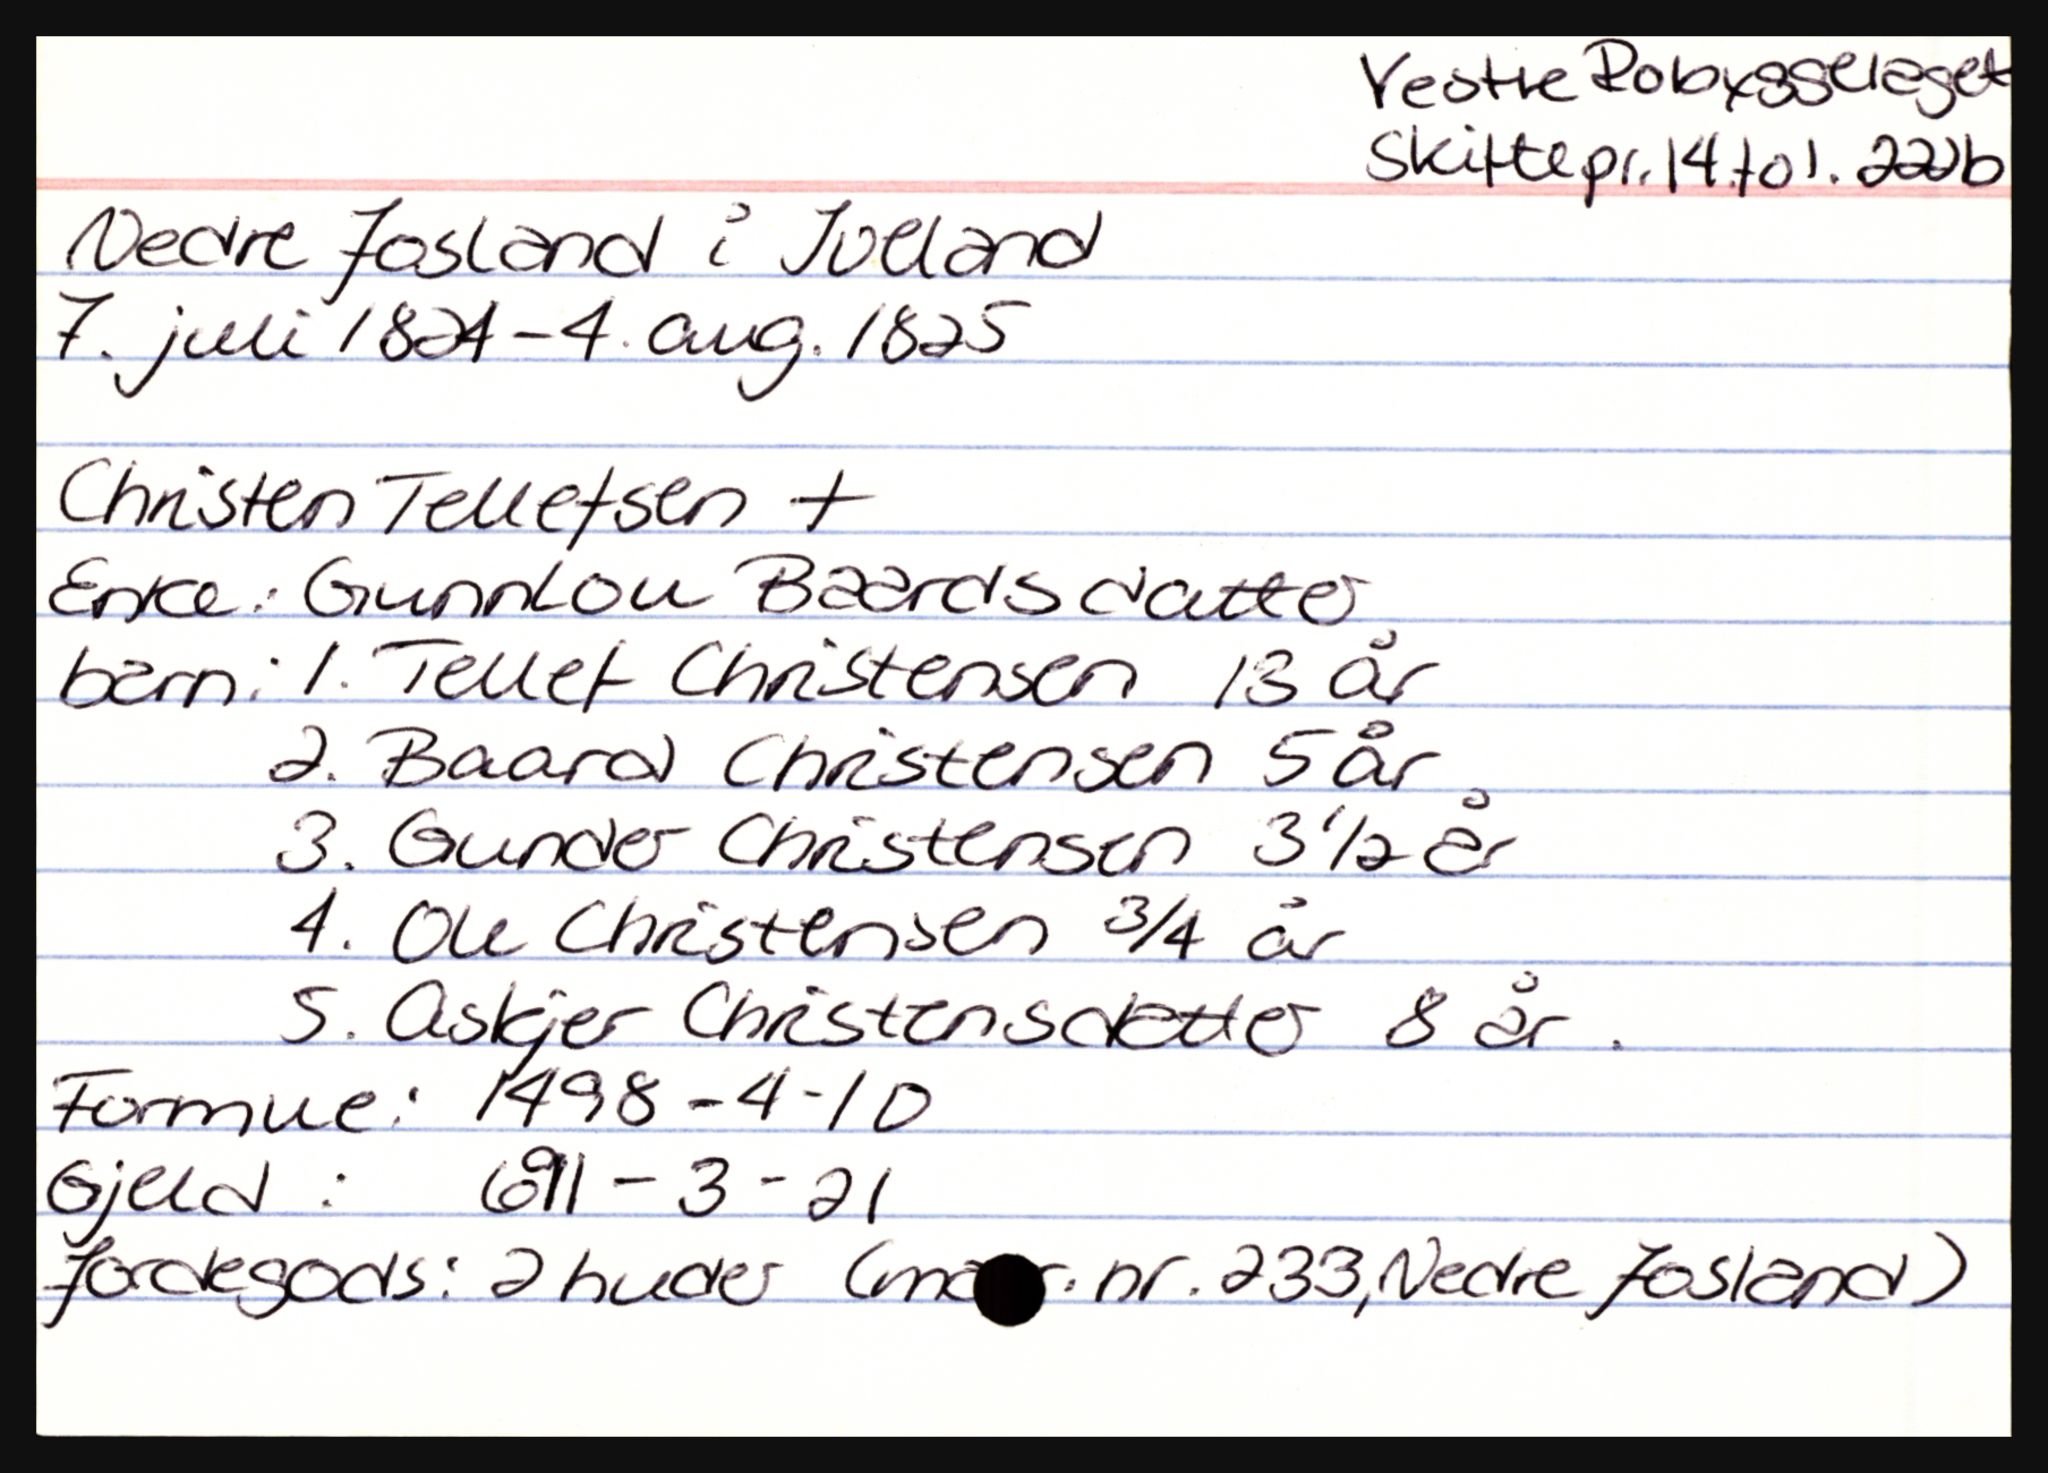 Vestre Robyggelaget
Skiftepr. 14. fol. 222b
Nedre Josland i Iveland
7. juli 1824 - 4. aug. 1825
Christen Tellefsen +
Enke: Gunnlou Baardsdatter
barn: 1. Tellef Christensen 13 år
2. Baard Christensen 5 år
3. Gunder Christensen 3 1/2 år
4. Ole Christensen 3/4 år
5. Askjer Christensdatter 8 år.
Formue: 1498 - 4 - 10
Gjeld : 691 - 3 - 21
Jordegods: 2 huder ( nr. 233, Nedre Josland)